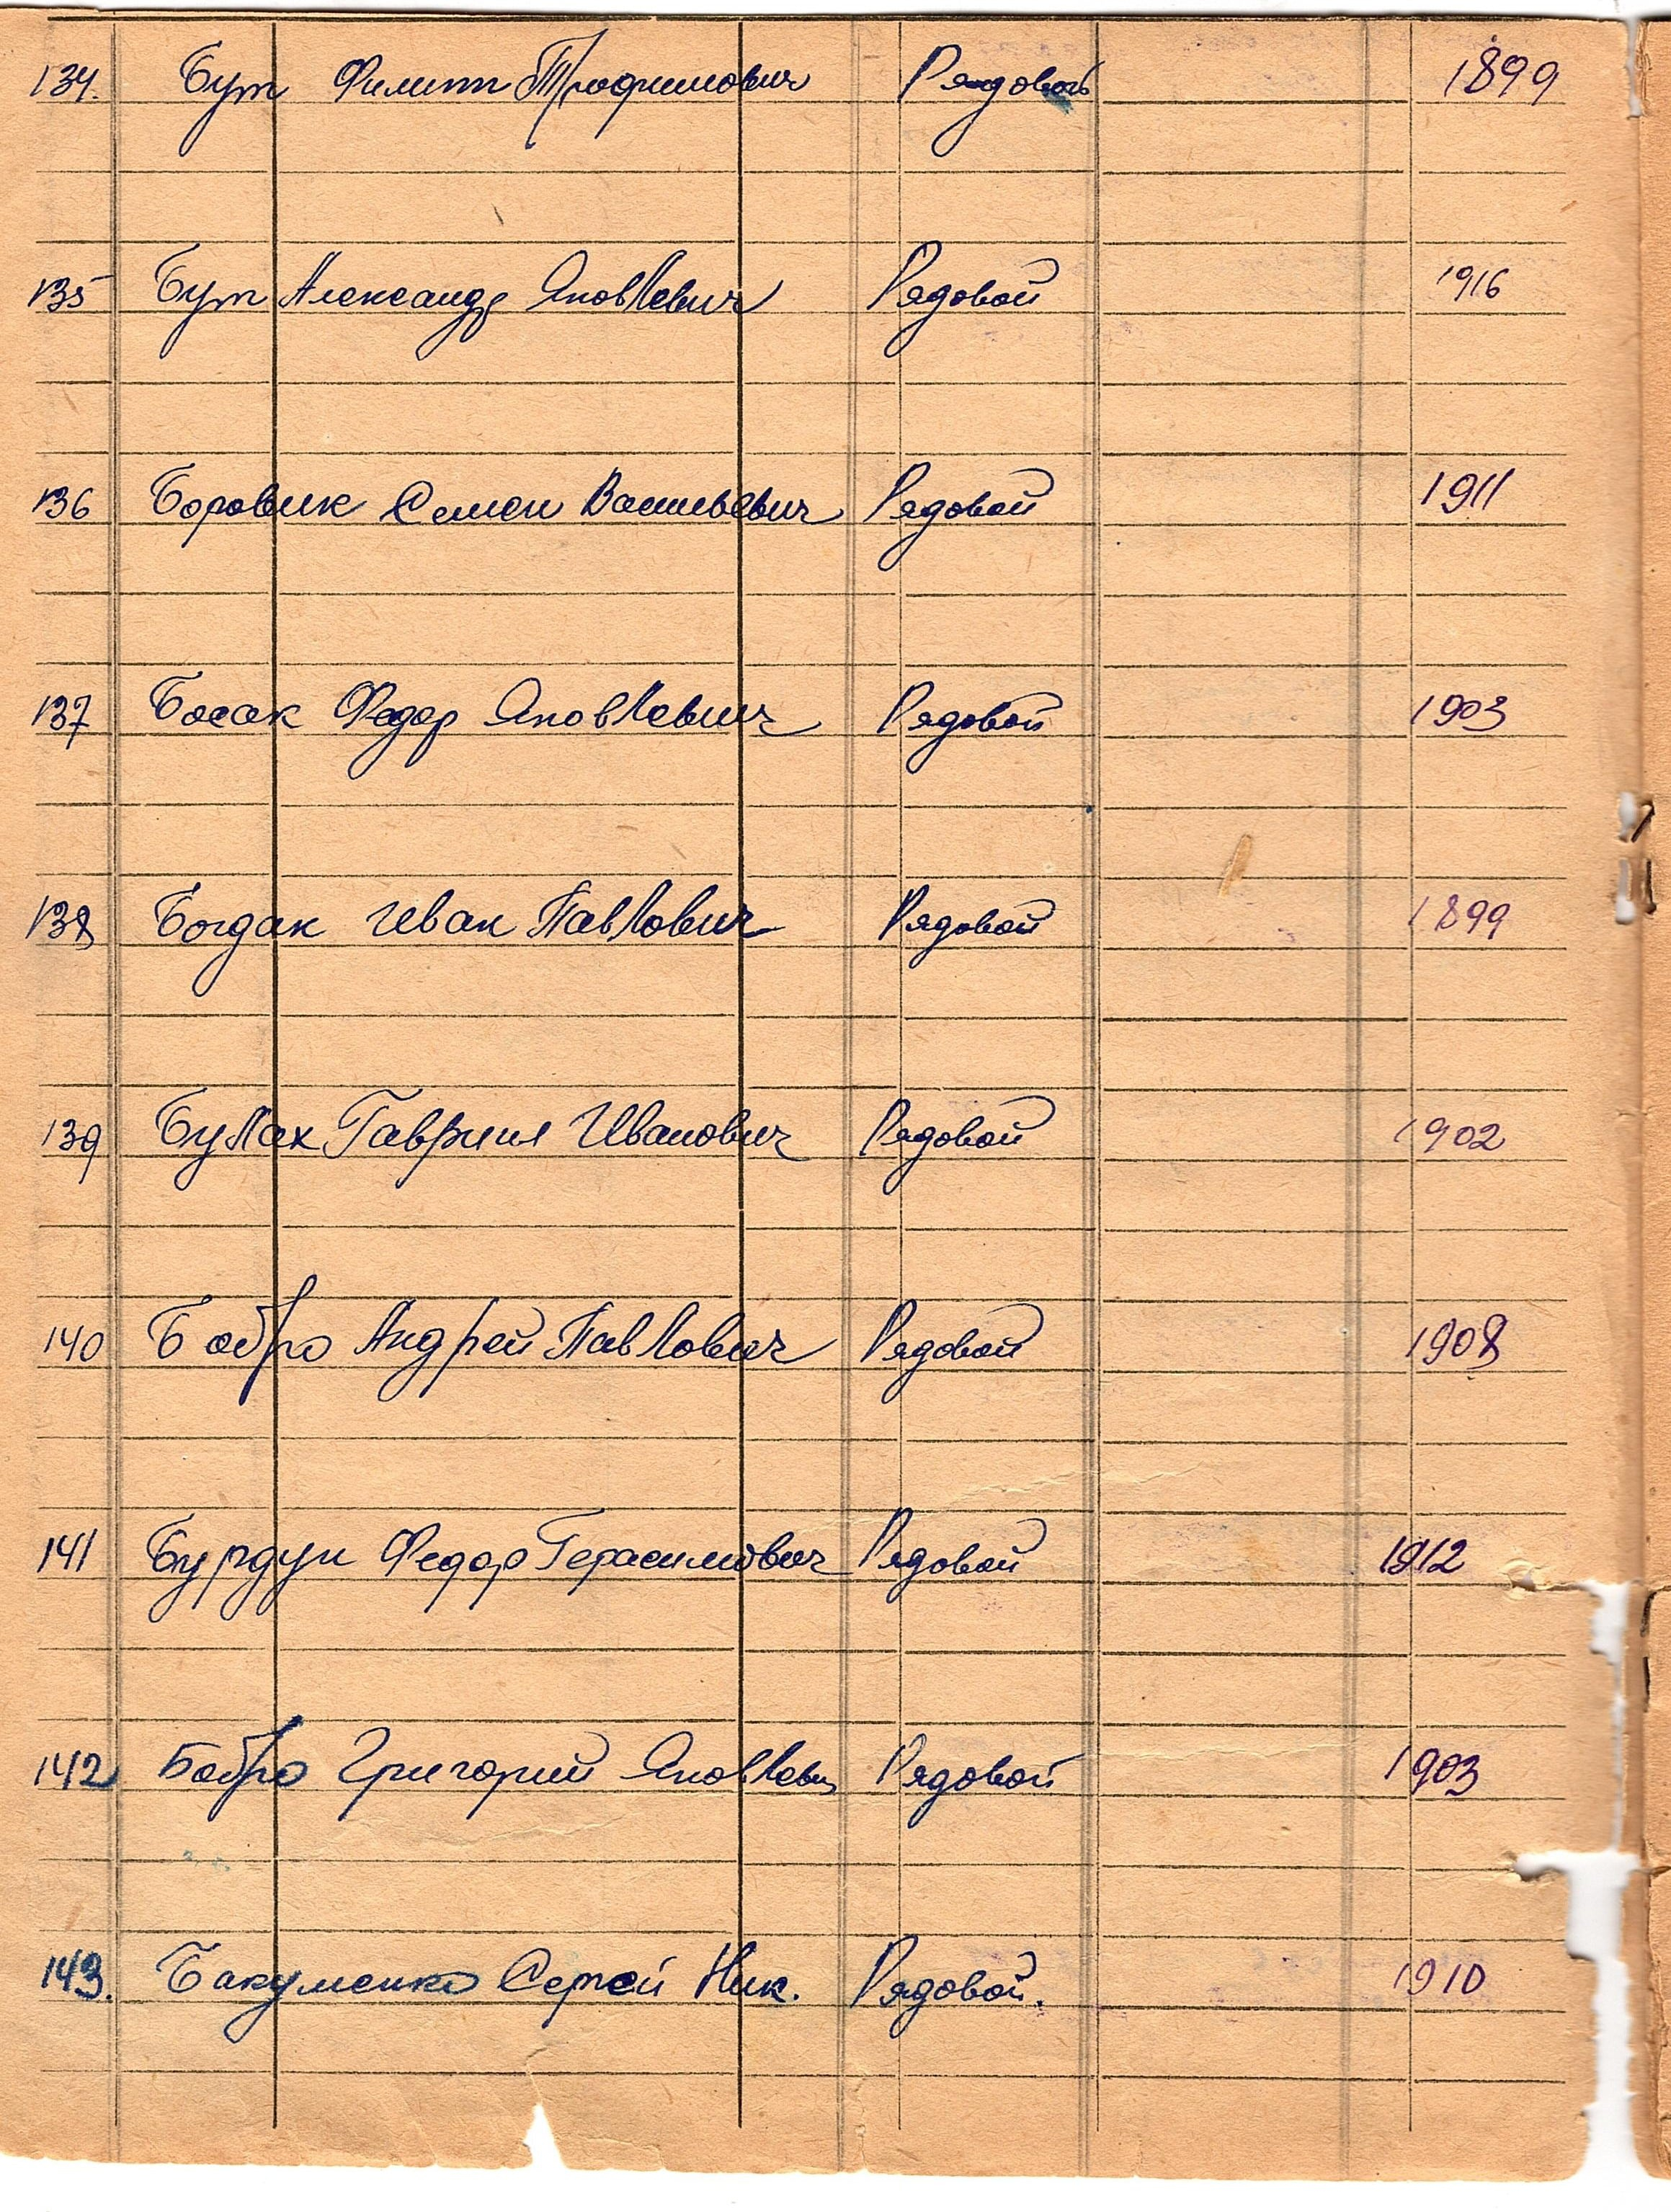 134. Бут Филипп Трофимович Рядовой 1899
135 Бут Александр Яковлевич Рядовой 1916
136 Боровик Семен Васильевич Рядовой 1911
137 Босак Федор Яковлевич Рядовой 1903
138 Богдан Иван Павлович Рядовой 1899
139 Булах Гаврил Иванович Рядовой 1902
140 Бобро Андрей Павлович Рядовой 1908
141 Бурдун Федор Герасимович Рядовой 1912
142 Бобро Григорий Яковлевич Рядовой 1903
143. Бакуменко Сергей Ник. Рядовой. 1910